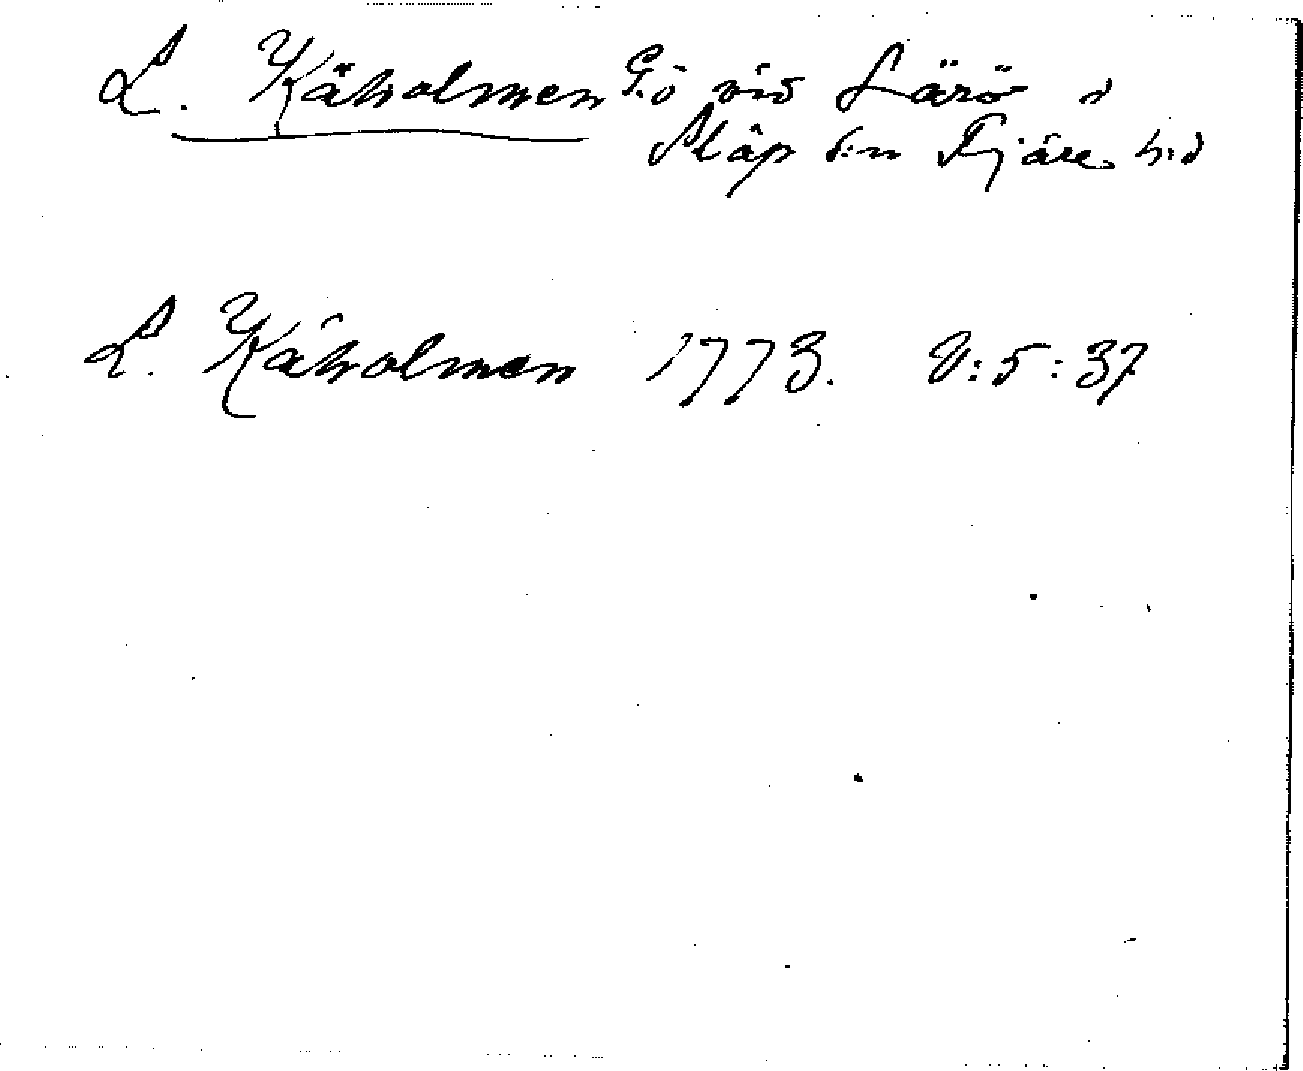 L. Kåholmen G. ö vid Särö i
Släp s:n Fjäre h:d
L. Kåholmen 1773. V:5:37